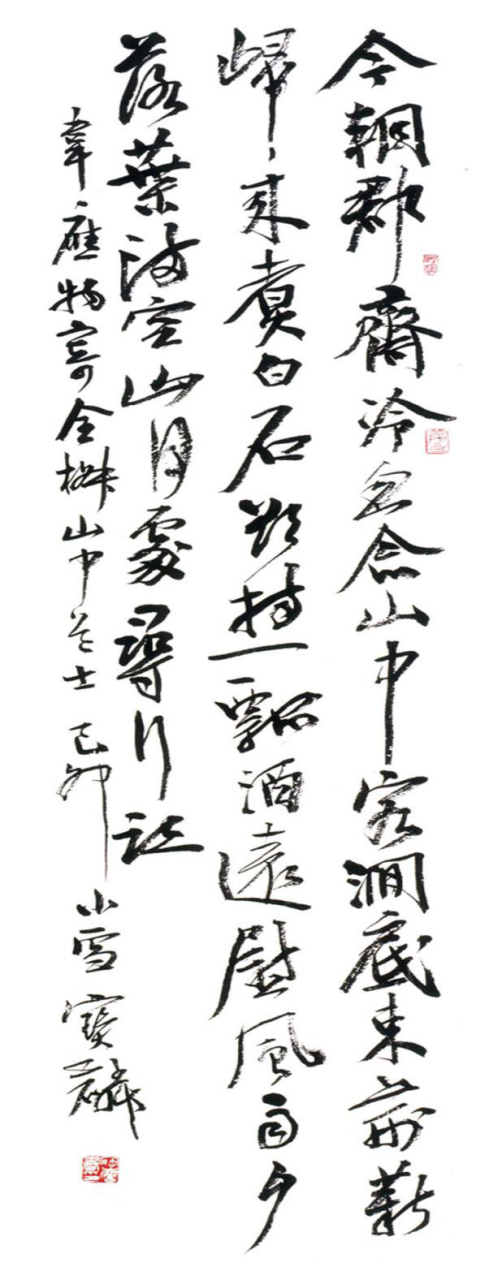 今朝郡齋冷忽念山中客澗底束荊薪
歸来煮白石欲持一瓢酒遠慰風雨夕
落葉滿空山何處尋行跡
韋應物寄全椒山中道士 己卯小雪 寶麟